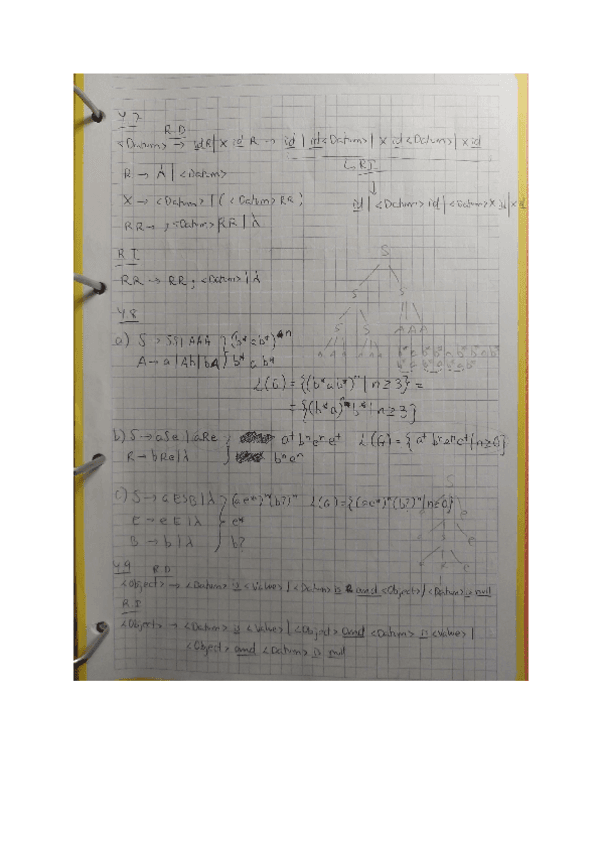 4.7
R.D
<Datum> → idR | X id R → id | id <Datum> | X id <Datum> | X id
R → λ | <Datum>
↳ R.I
X → <Datum> | ( <Datum> RR )
id | <Datum> id | <Datum> X id | X id
RR → , <Datum> RR | λ
R.I.
RR → RR , <Datum> | λ
4.8
a) S → SS | AAA
A → a | Ab | bA } b* a b*
L(G) = {(b* a b*)ⁿ | n ≥ 3} =
= {(b* a)ⁿ b* | n ≥ 3}
b) S → aSe | aRe } a⁺ bⁿ eⁿ e⁺ L(G) = { a⁺ bⁿ eⁿ e⁺ | n ≥ 0}
R → bRe | λ } bⁿ eⁿ
c) S → a E S B | λ } (a e*)ⁿ (b?)ⁿ L(G) = {(a e*)ⁿ (b?)ⁿ | n ≥ 0}
E → e E | λ } e*
B → b | λ } b?
4.9 R.D
<Object> → <Datum> is <Values> | <Datum> is R and <Object> | <Datum> is null
R.I
<Object> → <Datum> is <Values> | <Object> and <Datum> is <Values> |
<Object> and <Datum> is null